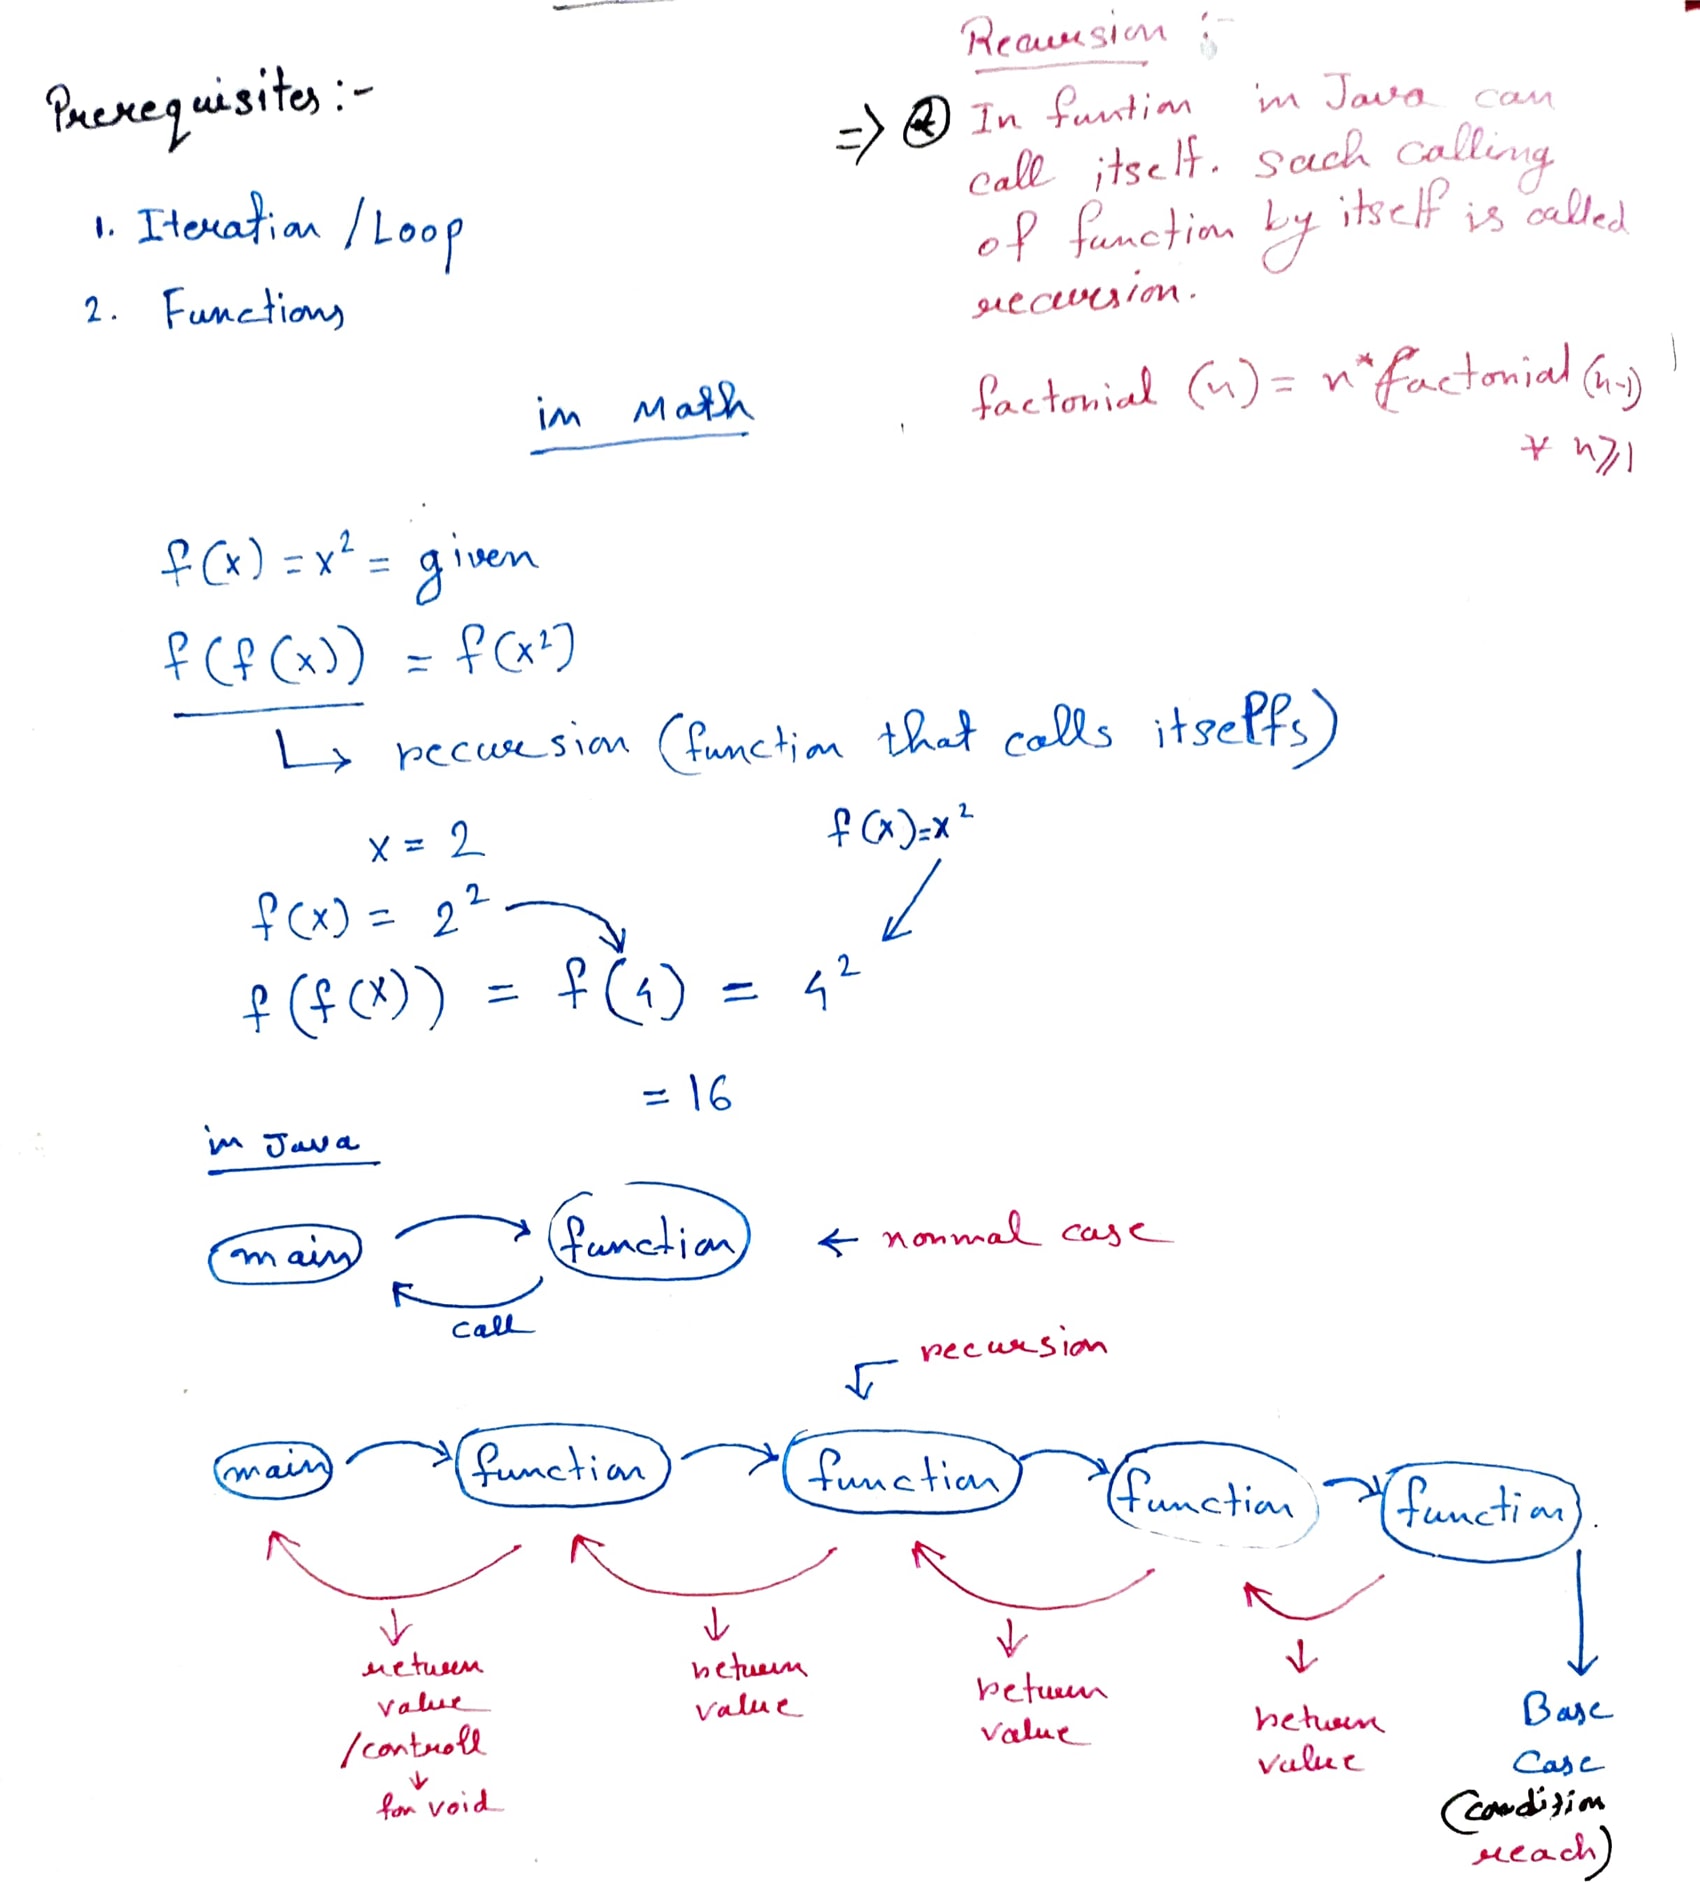 Prerequisites :-
1. Iteration / Loop
2. Functions
Recursion :-
=> * In funtion in Java can
call itself. Such calling
of function by itself is called
recursion.
factorial (n) = n * factorial (n-1)
∀ n ≥ 1
in Math
f(x) = x² = given
f(f(x)) = f(x²)
↳ recursion (function that calls itselfs)
x = 2
f(x) = x²
f(x) = 2²
f(f(x)) = f(4) = 4²
= 16
in Java
main function ← normal case
call
recursion
main function function function function
return
value
/controll
↓
for void
return
value
return
value
return
value
Base
Case
(condition
reach)